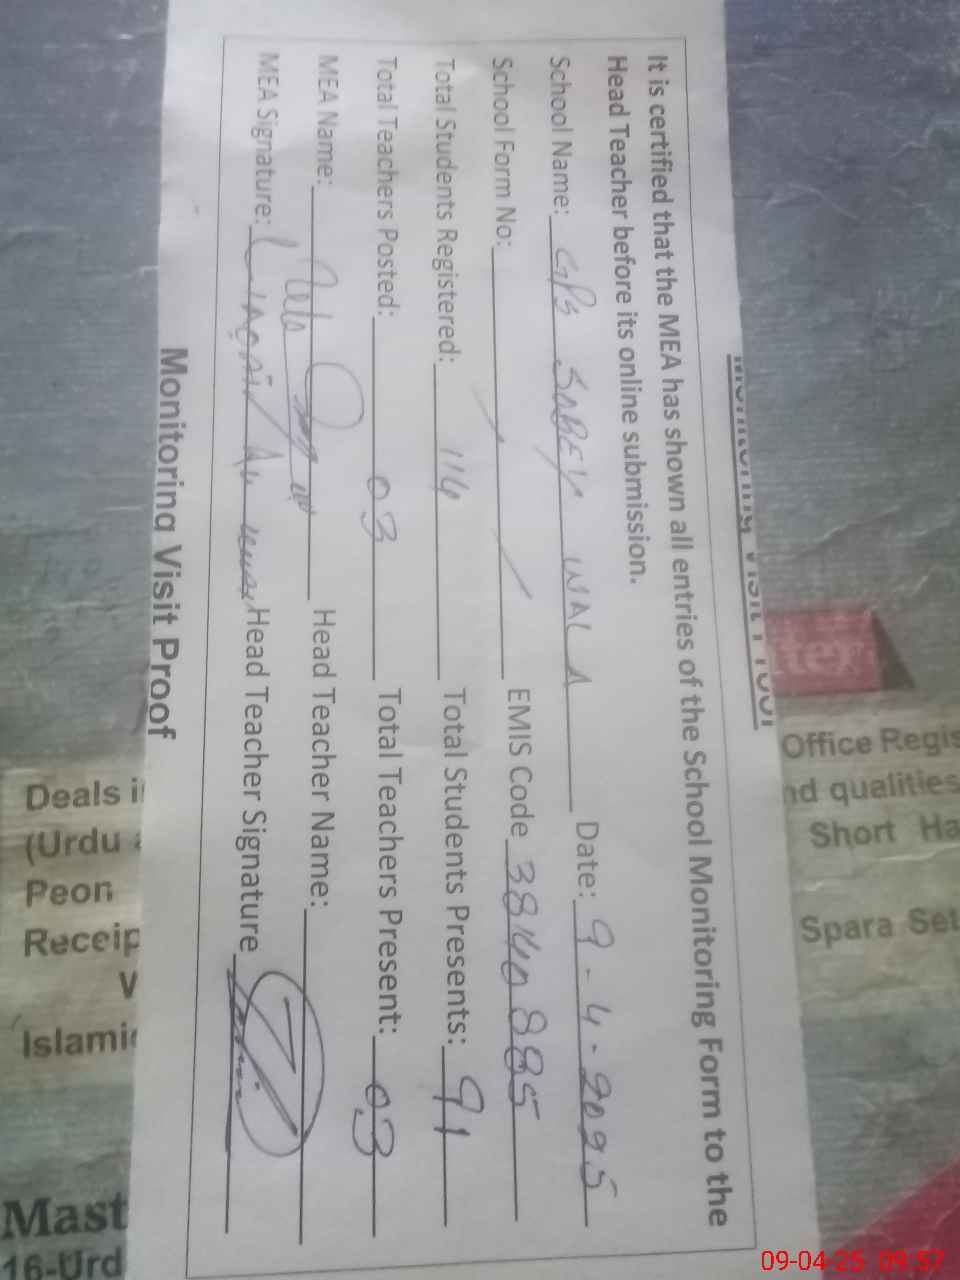 Monitoring Visit Proof
It is certified that the MEA has shown all entries of the School Monitoring Form to the
Head Teacher before its online submission.
School Name: GPS SABEY WALA Date: 9-4-2025
School Form No: EMIS Code 38140885
Total Students Registered: 114 Total Students Presents: 91
Total Teachers Posted: 03 Total Teachers Present: 03
MEA Name: Head Teacher Name:
MEA Signature: Head Teacher Signature
Monitoring Visit Proof
Office Regis
nd qualities
Short Ha
Spara Set
Deals i
(Urdu
Peon
Receip
V
Islamic
Mast
16-Urd
ter
09-04-25 09:57